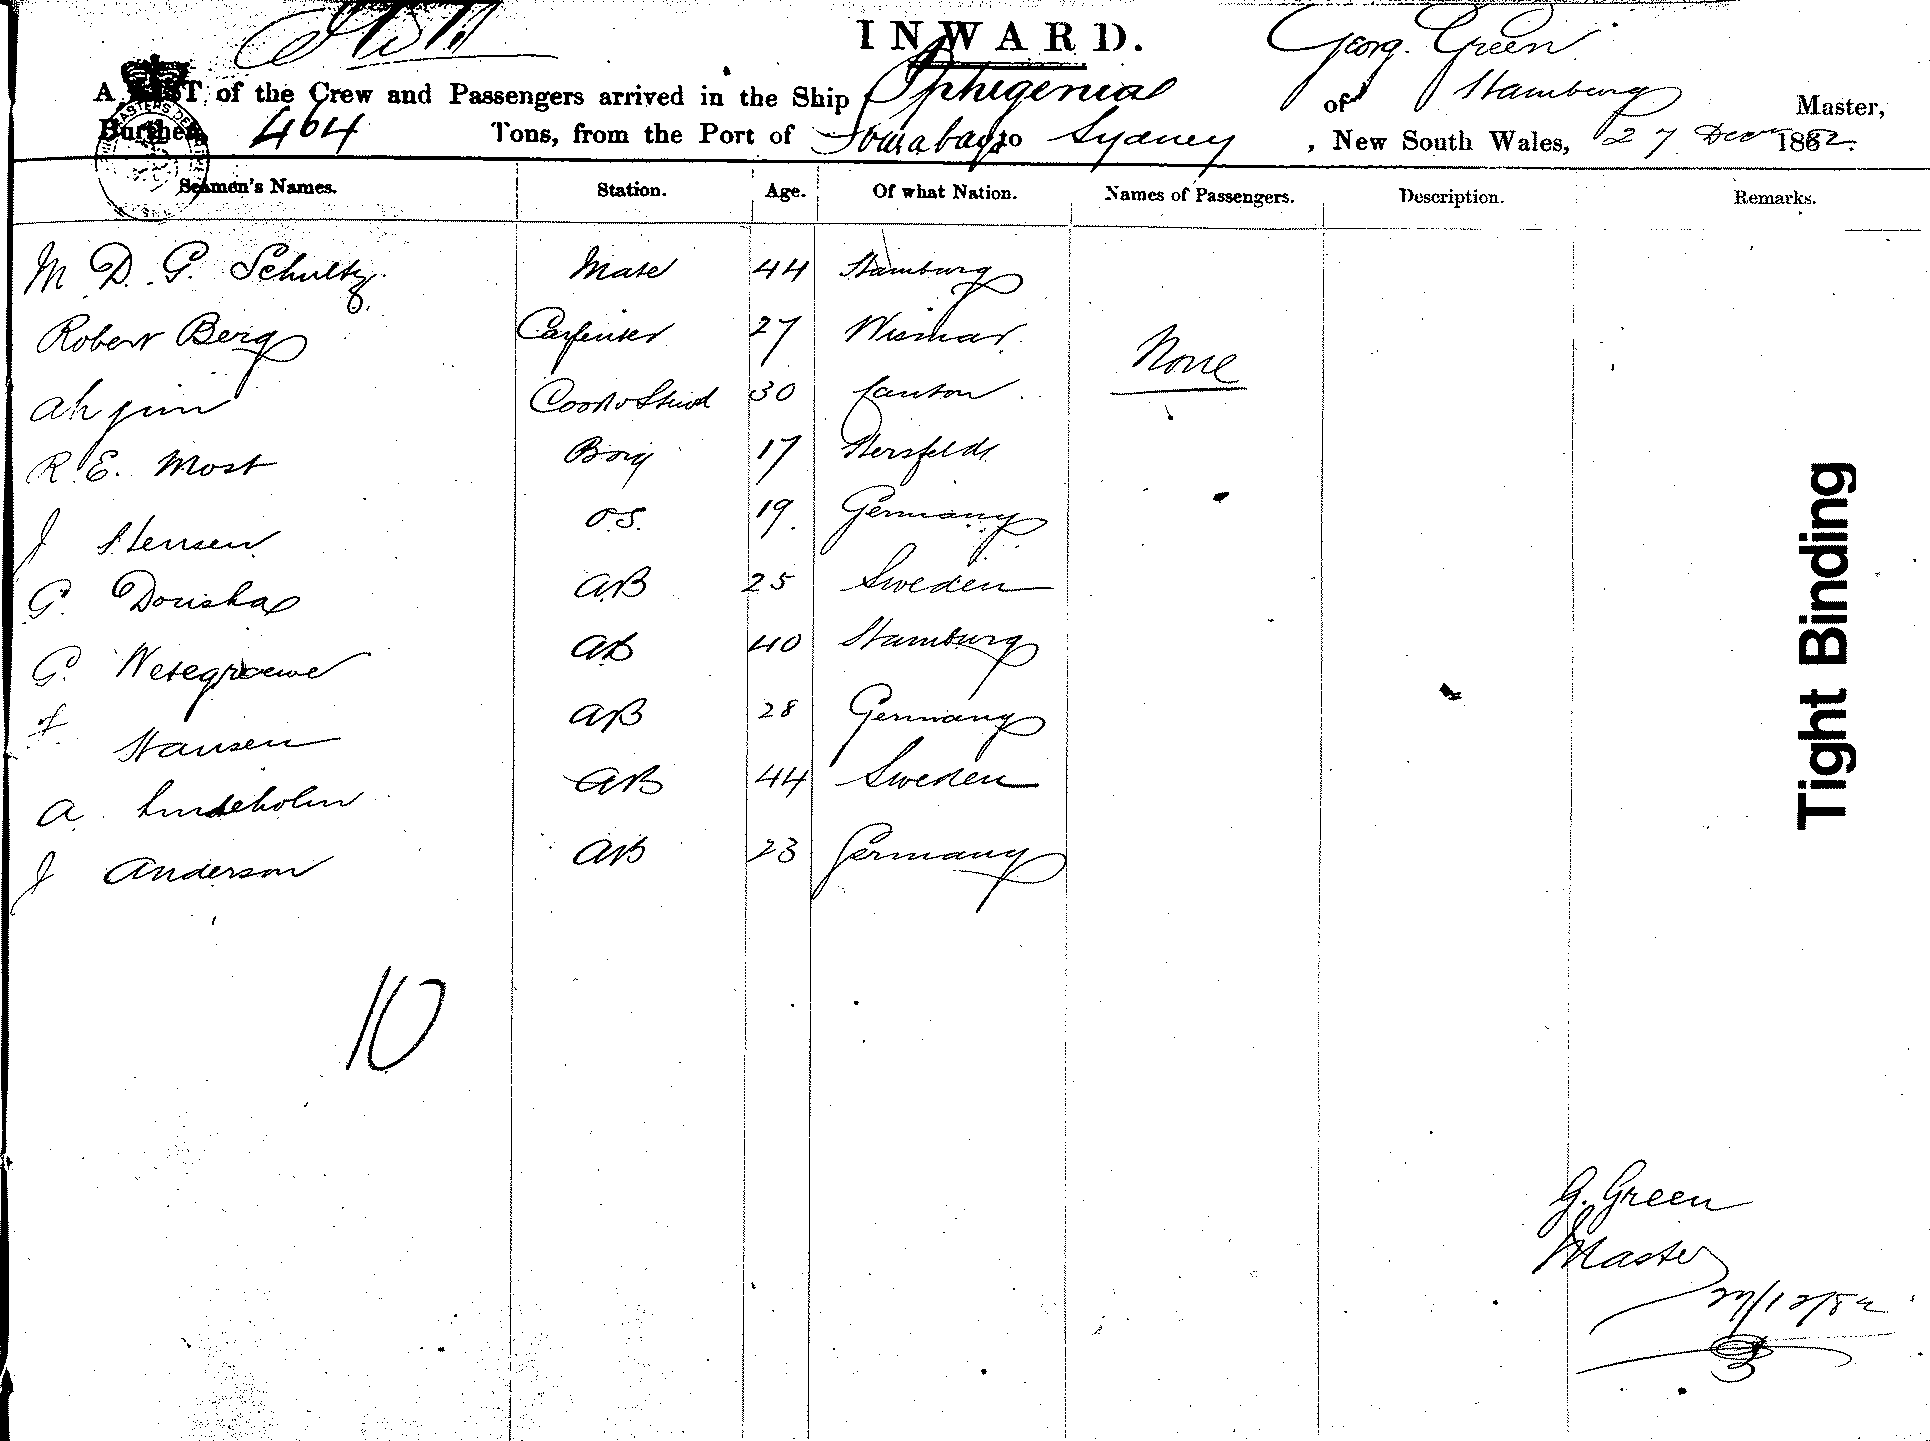 INWARD.
Georg. Green
A LIST of the Crew and Passengers arrived in the Ship Iphigenia of Hamburg Master,
Burthen, 464 Tons, from the Port of Sourabaya to Sydney, New South Wales, 27 Decr 1882.
Seamen's Names. Station. Age. Of what Nation. Names of Passengers. Description. Remarks.
M. D. G. Schultz. Mate 44 Hamburg
Robert Berg Carpenter 27 Wismar
None
Ah jim Cook & Stwd 30 Canton
R. E. Most Boy 17 Hersfeldt
J Hensen O.S. 19. Germany
G. AB 25 Sweden
G. AB 40 Hamburg
F. Hansen AB 28 Germany
A. Lindeholm AB 44 Sweden
J Anderson AB 23 Germany
10
Tight Binding
G. Green
Master
27/12/82